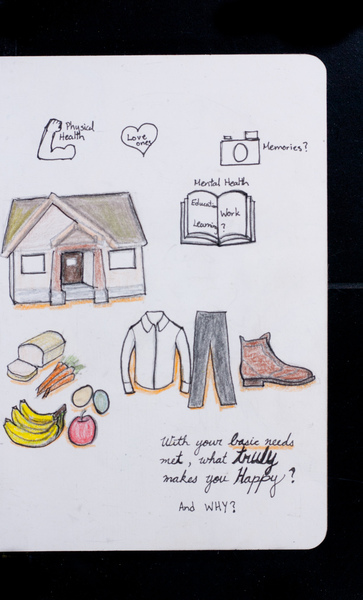 Physical
Health
Love
ones
Memories?
Mental Health
Work
Learning
?
With your basic needs
met, what truly
makes you Happy?
And WHY?